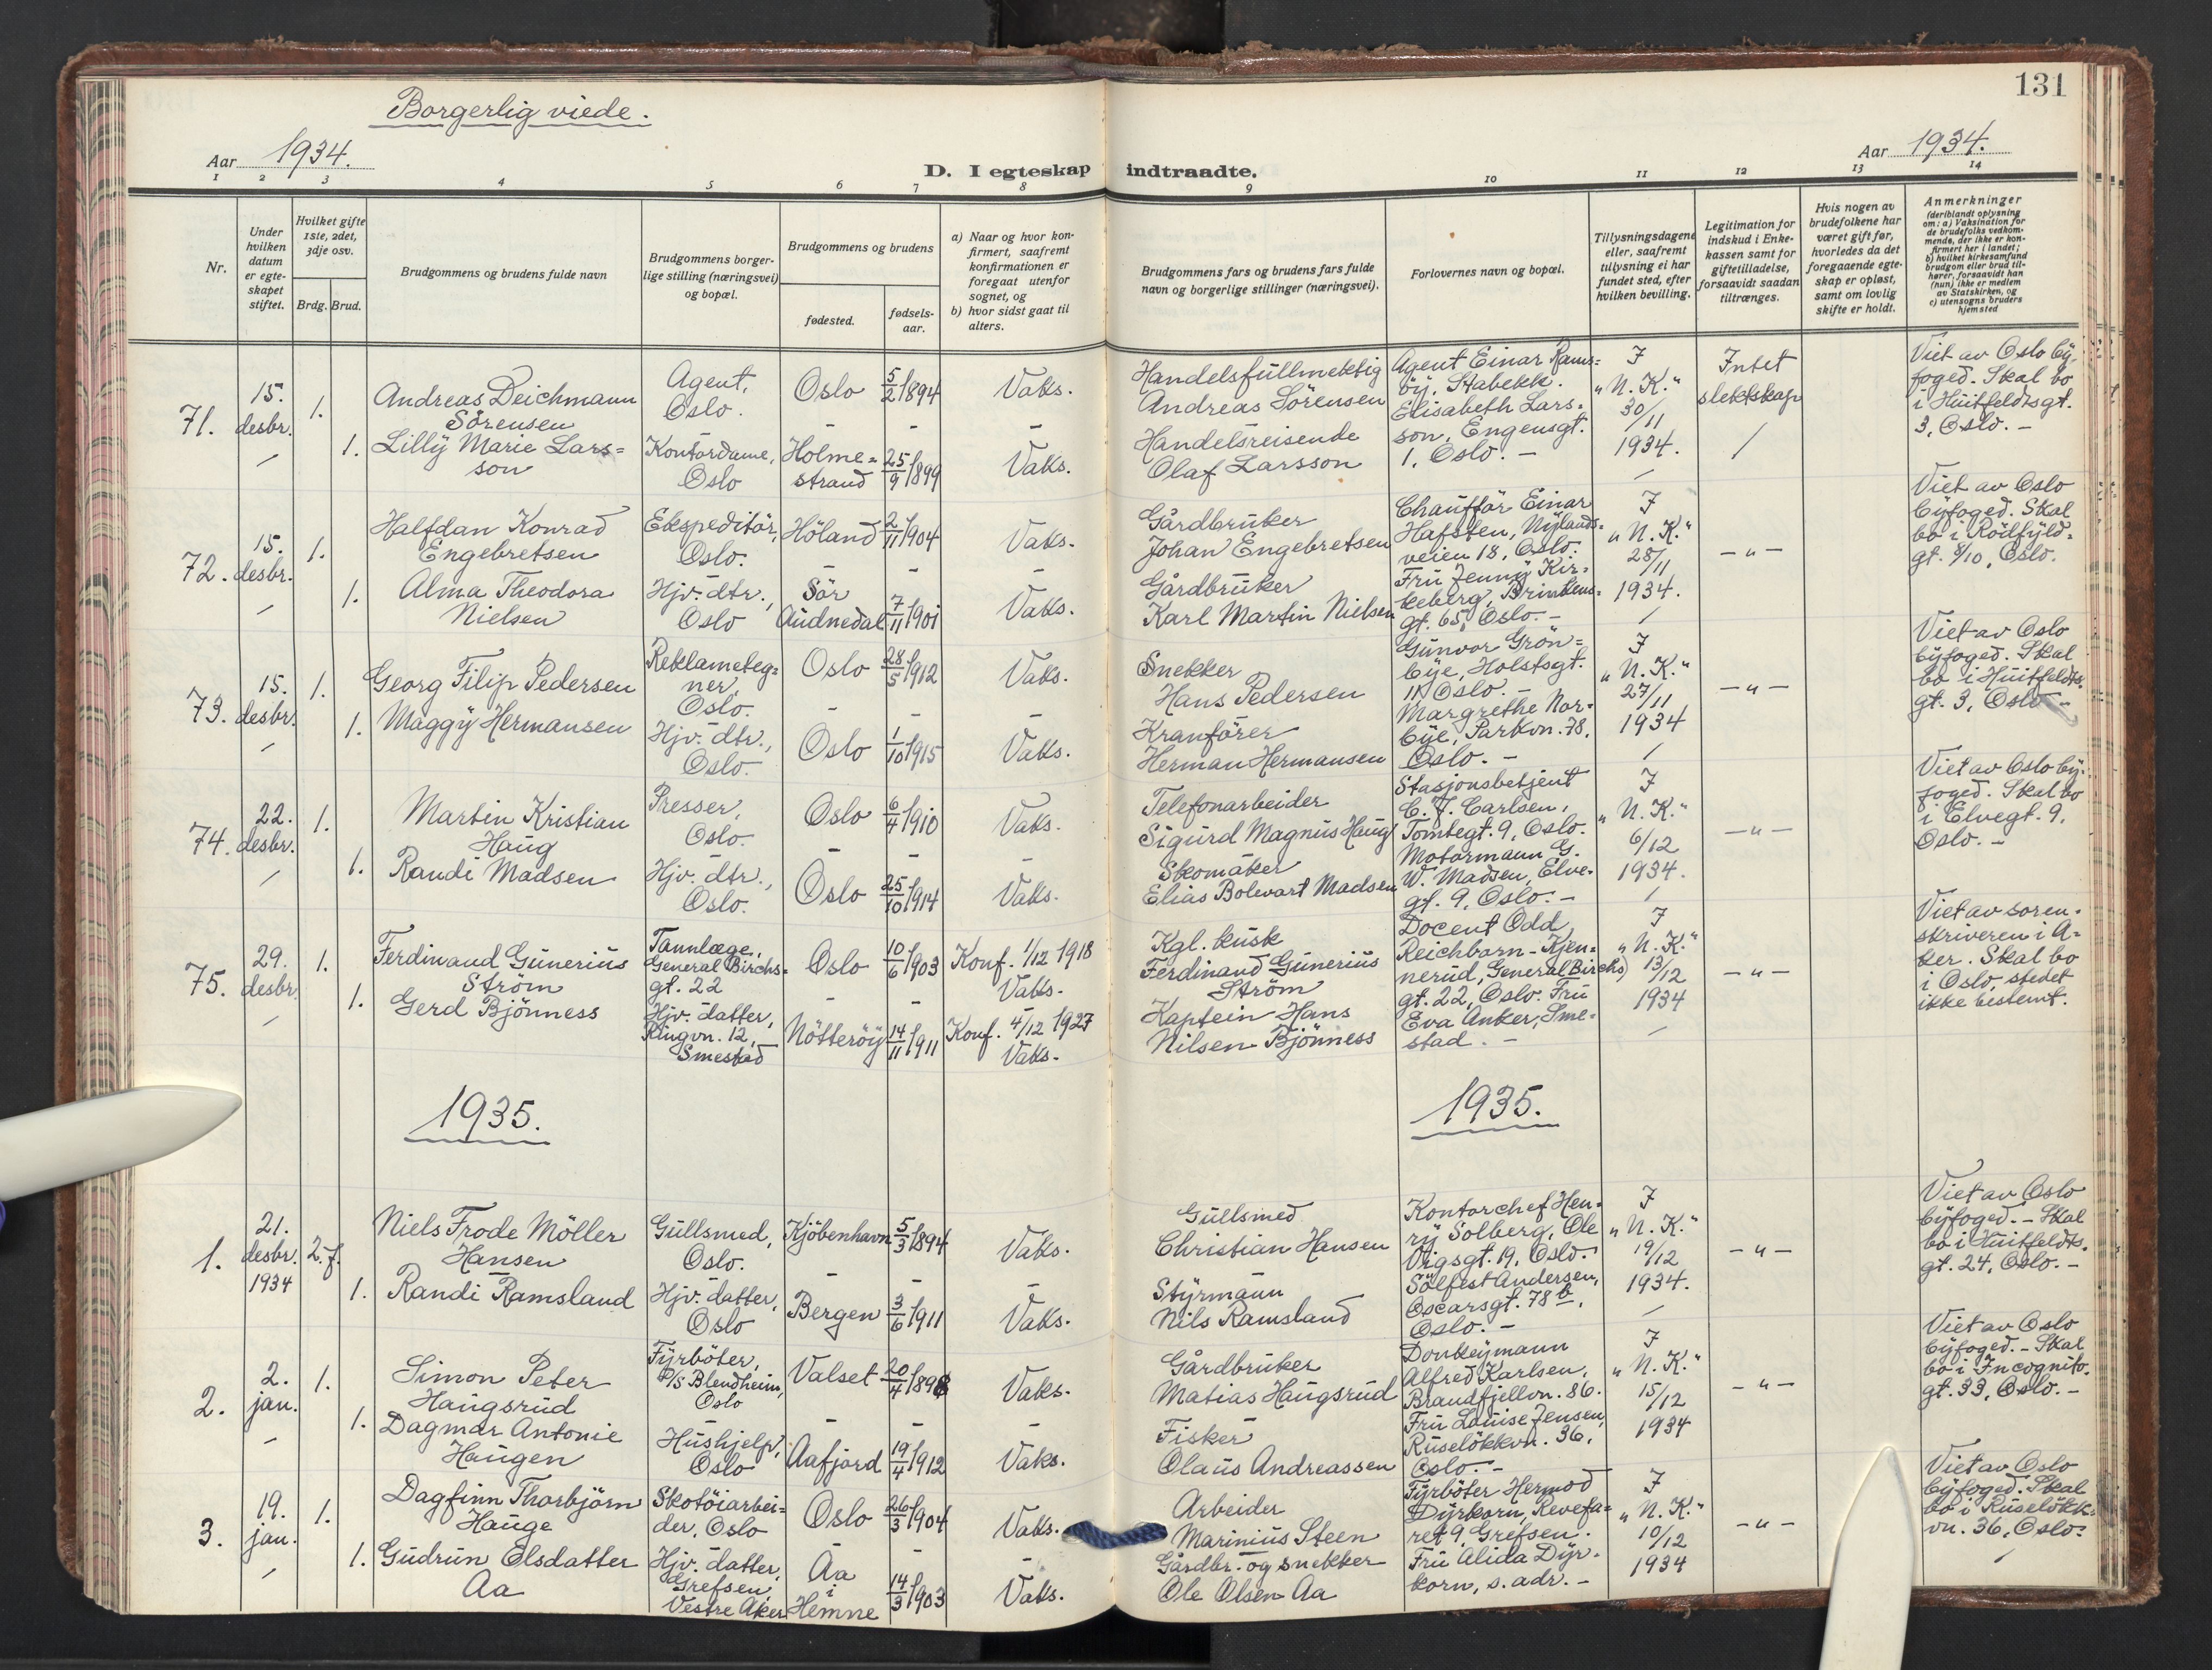 131
Borgerlig viede.
Aar 1934.
Aar 1934.
D. I egteskap indtraadte.
1 2 3 4 5 6 7 8 9 10 11 12 13 14
Nr.
Under hvilken datum er egteskapet stiftet.
Hvilket gifte 1ste, 2det, 3dje osv.
Brdg. Brud.
Brudgommens og brudens fulde navn
Brudgommens borgerlige stilling (næringsvei) og bopæl.
Brudgommens og brudens
fødested.
fødselsaar.
a) Naar og hvor konfirmert, saafremt konfirmationen er foregaat utenfor sognet, og
b) hvor sidst gaat til alters.
Brudgommens fars og brudens fars fulde navn og borgerlige stillinger (næringsvei).
Forlovernes navn og bopæl.
Tillysningsdagene eller, saafremt tillysning ei har fundet sted, efter hvilken bevilling.
Legitimation for indskud i Enkekassen samt for giftetilladelse, forsaavidt saadan tiltrænges.
Hvis nogen av brudefolkene har været gift før, hvorledes da det foregaaende egteskap er opløst, samt om lovlig skifte er holdt.
Anmerkninger
(deriblandt oplysning om: a) Vaksination for de brudefolks vedkommende, der ikke er konfirmert her i landet; b) hvilket kirkesamfund brudgom eller brud tilhører, forsaavidt han (hun) ikke er medlem av Statskirken, og c) utensogns bruders hjemsted
71. 15. desbr. 1.
Andreas Deichmann
Sörensen
Agent,
Oslo.
Oslo 5/2 1894
Vaks.
Handelsfullmektig
Andreas Sörensen
1. Lilly Marie Lars=
son
Kontordame,
Oslo
Holme=
strand 25/9 1899
Vaks.
Handelsreisende
Olaf Larsson
Agent Einar Rams=
by, Stabekk.
Elisabeth Lars=
son, Engensgt.
1, Oslo. –
I
„N. K.“
30/11
1934.
Intet
slektskap
Viet av Oslo by-
foged. Skal bo
i Huitfeldtsgt.
3, Oslo. –
72. 15. desbr. 1.
Halfdan Konrad
Engebretsen
Ekspeditör,
Oslo.
Höland 2/11 1904
Vaks.
Gårdbruker
Johan Engebretsen
1. Alma Theodora
Nielsen
Hjv. dtr.,
Oslo
Sör
Audnedal 7/11 1901
Vaks.
Gårdbruker
Karl Martin Nielsen
Chaufför Einar
Hafsten, Nylands=
veien 18, Oslo.
Fru Jenny Kir=
keberg, Brinkens=
gt. 65, Oslo. –
I
„N. K.“
28/11
1934.
– „ –
Viet av Oslo
byfoged. Skal
bo i Rödfyld=
gt. 8/10, Oslo.
73. 15. desbr. 1.
Georg Filip Pedersen
Reklameteg=
ner,
Oslo.
Oslo 28/5 1912
Vaks.
Snekker
Hans Pedersen
1. Maggy Hermansen
Hjv. dtr.,
Oslo.
Oslo 1/10 1915
Vaks.
Kranförer
Herman Hermansen
Gunvor Grön=
bye, Holstsgt.
11 Oslo. –
Margrethe Nor=
bye, Parkvn. 78,
Oslo. –
I
„N. K.“
27/11
1934
– „ –
Viet av Oslo
byfoged. Skal
bo i Huitfeldts=
gt. 3, Oslo –
74. 22. desbr. 1.
Martin Kristian
Haug
Presser,
Oslo.
Oslo 6/4 1910
Vaks.
Telefonarbeider
Sigurd Magnus Haug
1. Randi Madsen
Hjv. dtr.,
Oslo.
Oslo 25/10 1914
Vaks.
Skomaker
Elias Bolevart Madsen
Stasjonsbetjent
C. J. Carlsen,
Tomtegt. 9, Oslo.
Motormann G.
W. Madsen, Elve=
gt. 9, Oslo. –
I
„N. K.“
6/12
1934.
– „ –
Viet av Oslo by-
foged. Skal bo
i Elvegt. 9,
Oslo. –
75. 29. desbr. 1.
Ferdinand Gunerius
Ström
Tannlæge,
General Birchs=
gt. 22
Oslo 10/6 1903
Konf. 1/12 1918
Vaks.
Kgl. kusk
Ferdinand Gunerius
Ström
1. Gerd Bjönness
Hjv. datter,
Ringvn. 12,
Smestad
Nötteröy 14/11 1911
Konf. 4/12 1927
Vaks.
Kaptein Hans
Nilsen Bjönness
Docent Odd
Reichborn-Kjen=
nerud, General Birchs)
gt. 22, Oslo. Fru
Eva Anker, Sme=
stad. –
I
„N. K.“
13/12
1934
– „ –
Viet av soren-
skriveren i A=
ker. Skal bo
i Oslo, stedet
ikke bestemt.
1935.
1935.
1. 21. desbr. 1934 2. f.
Niels Frode Möller
Hansen
Gullsmed,
Oslo.
Kjöbenhavn 5/3 1894
Vaks.
Gullsmed
Christian Hansen
1. Randi Ramsland
Hjv. datter,
Oslo
Bergen 3/6 1911
Vaks.
Styrmann
Nils Ramsland
Kontorchef Hen=
ry Solberg, Ole
Vigsgt. 19, Oslo.
Sölfest Andersen,
Oscarsgt. 78 b,
Oslo. –
I
„N. K.“
19/12
1934.
– „ –
Viet av Oslo
byfoged. – Skal
bo i Huitfeldts=
gt. 24, Oslo. –
2. 2. jan. 1.
Simon Peter
Haugsrud
Fyrböter,
P/S Blendheim,
Oslo
Valset 20/4 1898
Vaks.
Gårdbruker
Matias Haugsrud
1. Dagmar Antonie
Haugen
Hushjelp,
Oslo
Aafjord 19/4 1912
Vaks.
Fisker
Olaus Andreassen
Donkeymann
Alfred Karlsen,
Brandfjellvn. 86.
Fru Louise Jensen,
Ruselökkvn. 36,
Oslo. –
I
„N. K.“
15/12
1934
– „ –
Viet av Oslo
byfoged. – Skal
bo i Incognito=
gt. 33, Oslo. –
3. 19. jan. 1.
Dagfinn Thorbjörn
Hauge
Skotöiarbei=
der, Oslo
Oslo 26/3 1904
Vaks.
Arbeider
Marinius Steen
1. Gudrun Olsdatter
Aa
Hjv. datter,
Grefsen,
Vestre Aker
Aa
i
Hemne 14/3 1903
Vaks.
Gårdbr. og snekker
Ole Olsen Aa
Fyrböter Hermod
Dyrkorn, Revefa=
ret 9, Grefsen.
Fru Alida Dyr=
korn, s. adr. –
I
„N. K.“
10/12
1934
– „ –
Viet av Oslo
byfoged. Skal
bo i Ruselökk=
vn. 36, Oslo.